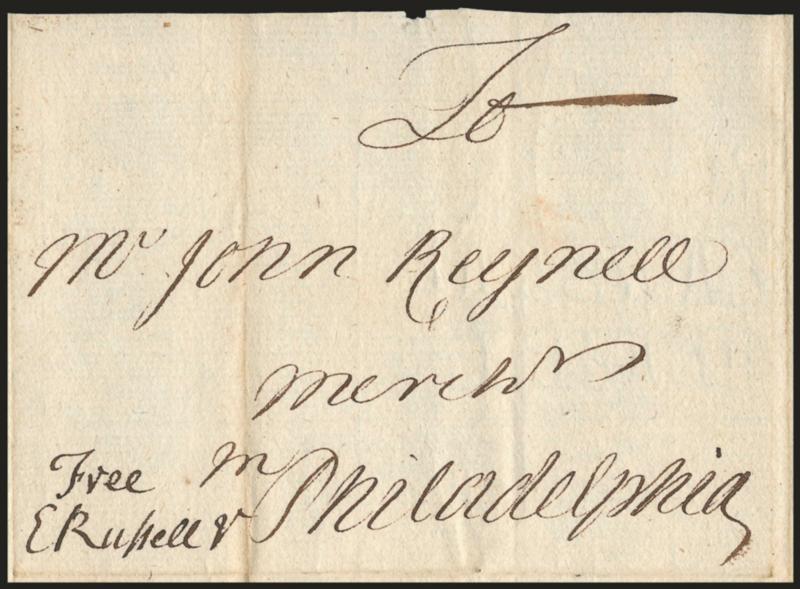 To
Mr John Reynell
Merchr
in Philadelphia
Free
E Russell